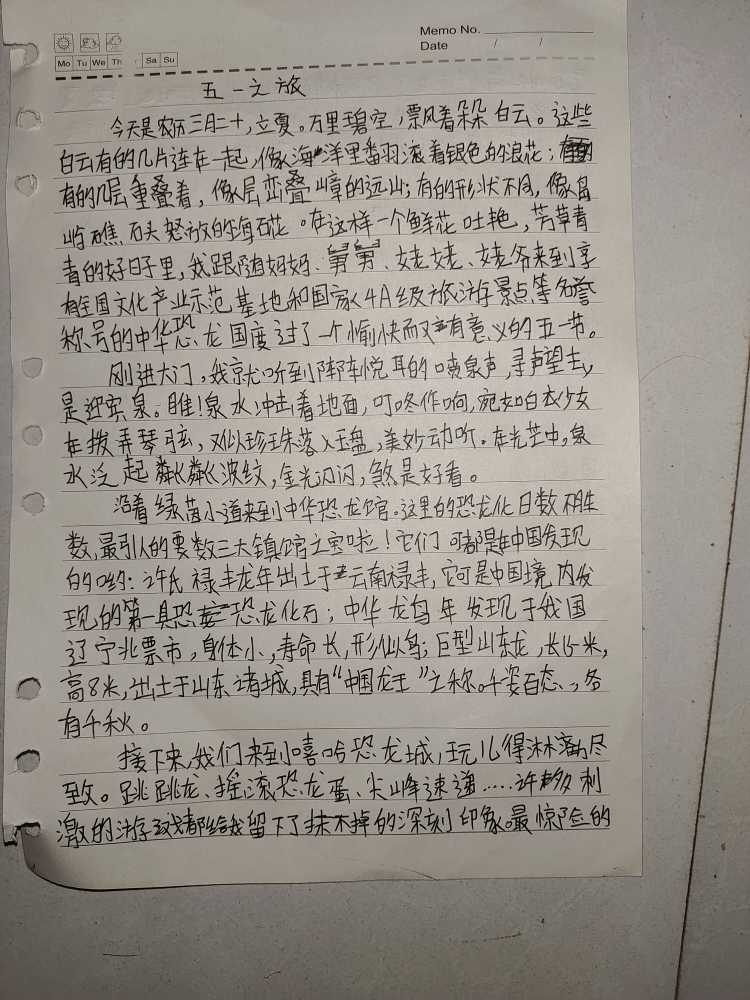 Memo No.
Date / /
Mo Tu We Th Sa Su
五一之旅
今天是农历三月二十，立夏。万里碧空，飘着朵朵白云。这些
白云有的几片连在一起，像海洋里番羽滚着银色的浪花；
有的几层重叠着，像层峦叠嶂的远山；有的形状不同，像岛
屿礁石头怒放的海石花。在这样一个鲜花吐艳，芳草青
青的好日子里，我跟随妈妈、舅舅、姥姥、姥爷来到享
有全国文化产业示范基地和国家4A级旅游景点等名誉
称号的中华恐龙国度过了一个愉快而又有意义的五一节。
刚进大门，我就听到阵阵悦耳的喷泉声，寻声望去，
是迎宾泉。瞧！泉水冲击着地面，叮咚作响，宛如白衣少女
在拨弄琴弦，又似珍珠落入玉盘，美妙动听。在光芒中，泉
水泛起粼粼波纹，金光闪闪，煞是好看。
沿着绿茵小道来到中华恐龙馆。这里的恐龙化日数不胜
数，最引人的要数三大镇馆之宝啦！它们可都是在中国发现
的哟：许氏禄丰龙年出土于云南禄丰，它可是中国境内发
现的第一具恐龙化石；中华龙鸟年发现于我国
辽宁北票市，身体小，寿命长，形似鸟；巨型山东龙，长15米，
高8米，出土于山东诸城，具有“中国龙王”之称。千姿百态、，各
有千秋。
接下来，我们来到嘻哈恐龙城，玩儿得淋漓尽
致。跳跳龙、摇滚恐龙蛋、尖峰速递……许多刺
激的游戏都给我留下了抹不掉的深刻印象。最惊险的